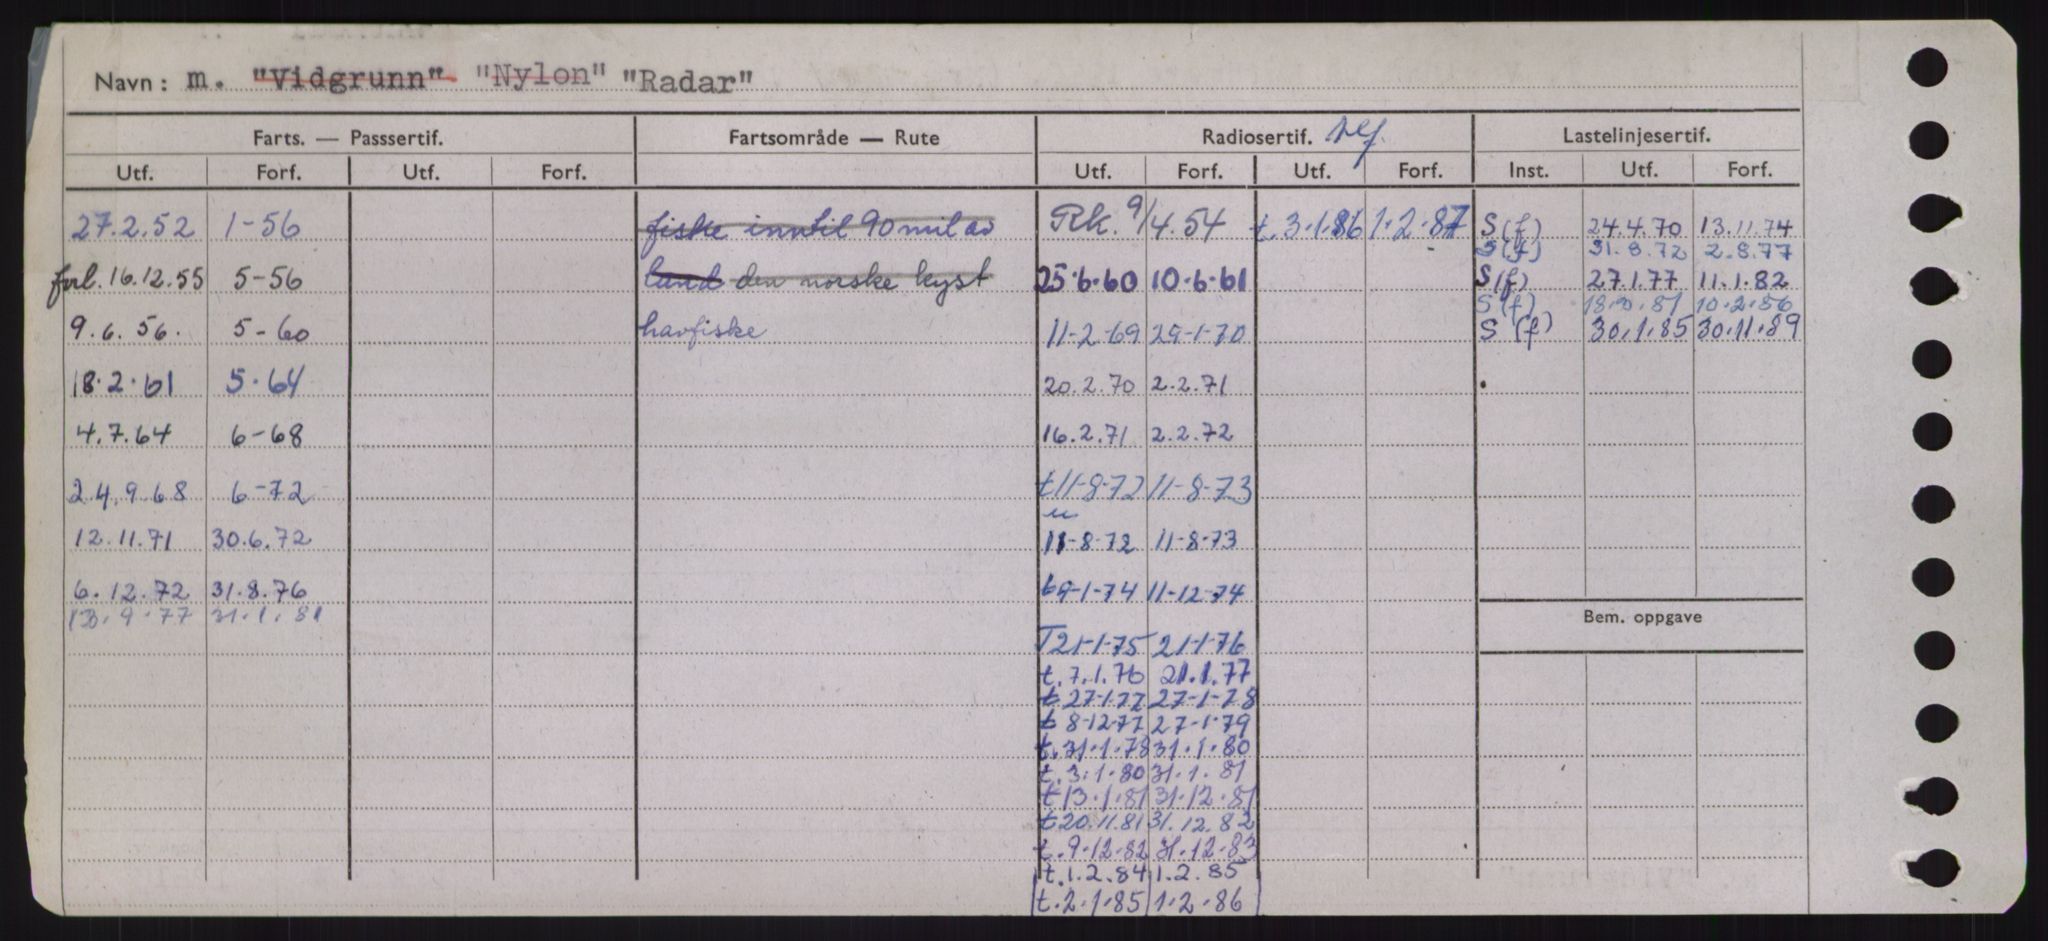 Navn: m. "Vidgrunn" "Nylon" "Radar"
Farts. — Passsertif. Fartsområde — Rute Radiosertif. Lastelinjesertif.
Utf. Forf. Utf. Forf. Utf. Forf. Utf. Forf. Inst. Utf. Forf.
27.2.52 1-56 fiske inntil 90 mil av Rk. 9/4.54 t.3.1.86 1.2.87 S(f) 24.4.70 13.11.74
S(f) 31.8.72 2.8.77
forl. 16.12.55 5-56 land den norske kyst 25.6.60 10.6.61 S(f) 27.1.77 11.1.82
S(f) 10.2.86
9.6.56. 5-60 havfiske 11-2-69 29-1-70 S(f) 30.1.85 30.11.89
18.2.61 5.64 20.2.70 2.2.71
4.7.64 6-68 16.2.71 2.2.72
24.9.68 6-72 t11-8-72 11-8-73
12.11.71 30.6.72 11-8-72 11-8-73
6.12.72 31.8.76 9-1-74 11-12-74
13.9.77 31.1.81
Bem. oppgave
T21-1-75 21-1-76
t.7.1.76 21.1.77
t.27-1-77 27-1-78
t 8-12-77 27-1-79
t.31.1.78 31.1.80
t.3.1.80 31.1.81
t13.1.81 31.12.81
t20.11.81 31.12.82
t.9.12.82 31.12.83
t.1.2.84 1.2.85
t.2.1.85 1.2.86